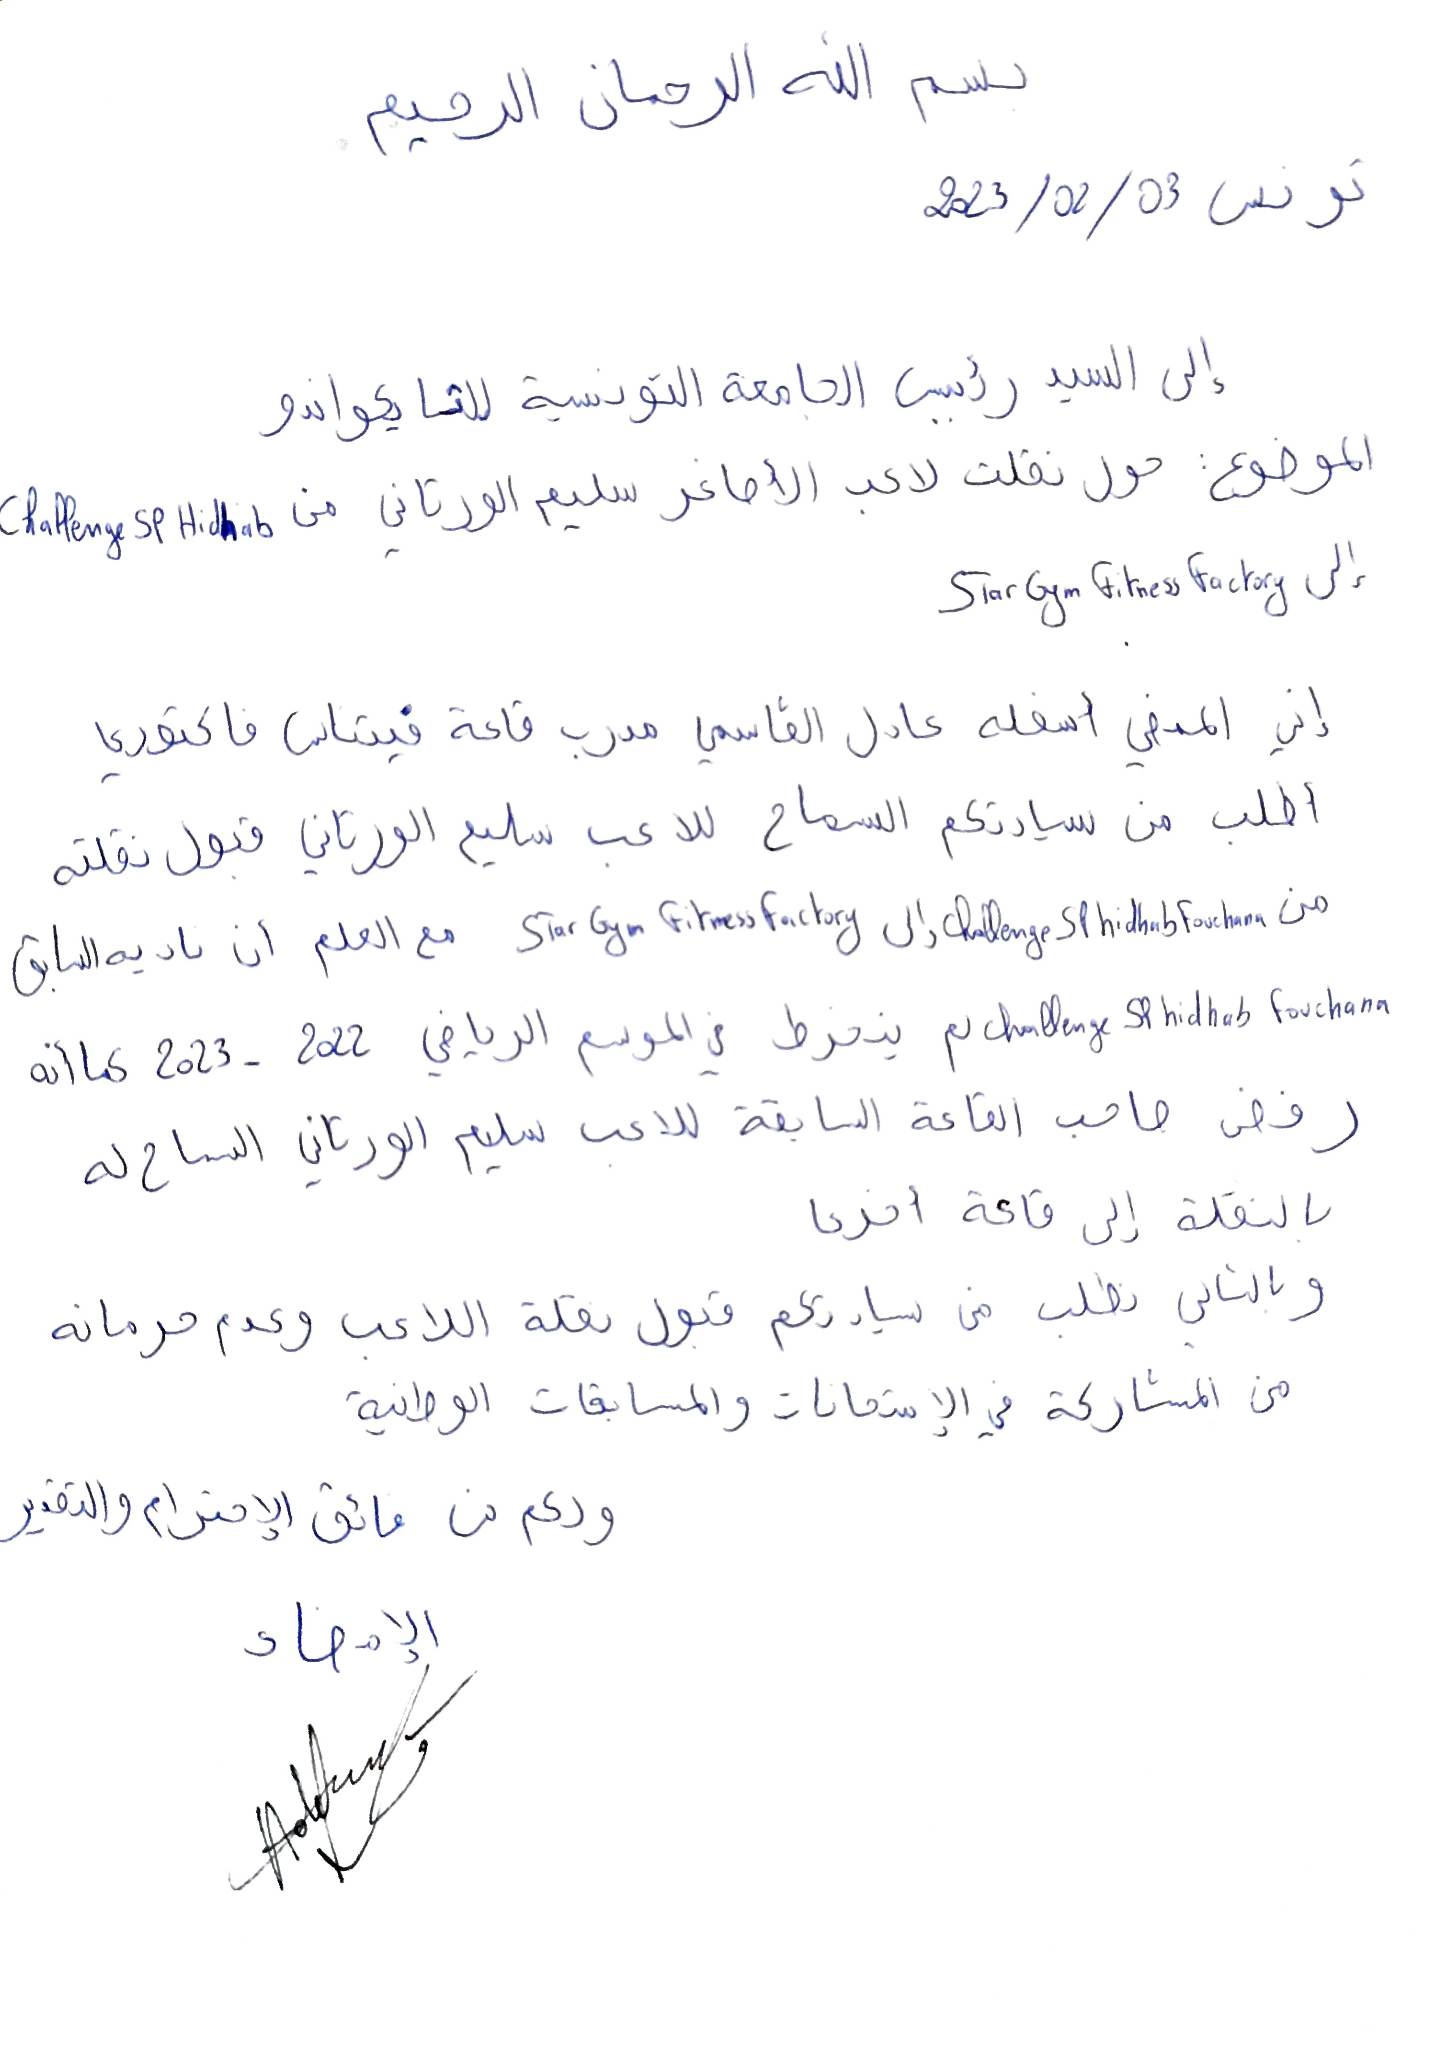 بسم الله الرحمان الرحيم
تونس 03/02/2023
إلى السيد رئيس الجامعة التونسية للتايكواندو
الموضوع: حول نقلت لاعب الأصاغر سليم الورتاني من Challenge SP Hidhab
إلى Star Gym Fitness Factory
إني الممضي أسفله عادل القاسمي مدرب قاعة فيتناس فاكتوري
أطلب من سيادتكم السماح للاعب سليم الورتاني قبول نقلته
من Challenge SP hidhab Fouchana إلى Star Gym Fitness Factory مع العلم أن ناديه السابق
Challenge SP hidhab Fouchana لم ينخرط في الموسم الرياضي 2022 - 2023 كما أنه
رفض صاحب القاعة السابقة للاعب سليم الورتاني السماح له
بالنقلة إلى قاعة أخرى
وبالتالي نطلب من سيادتكم قبول نقلة اللاعب وعدم حرمانه
من المشاركة في الإمتحانات والمسابقات الوطنية
ولكم من فائق الإحترام والتقدير
الإمضاء